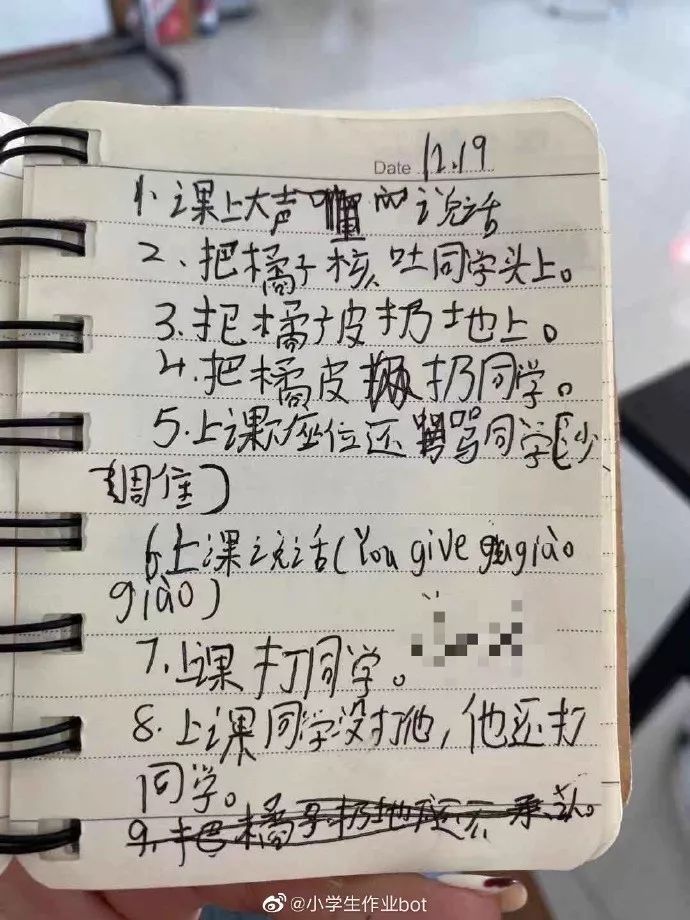 Date 12.19
1.课上大声的说话
2、把橘子核吐同学头上。
3.把橘子皮扔地上。
4.把橘皮扔同学。
5.上课下座位还骂同学(少
调住)
6上课说话(You give gugiào
giào)
7.上课打同学。
8.上课同学没打他,他还打
同学。
9.把橘子扔地还不承认。
@小学生作业bot